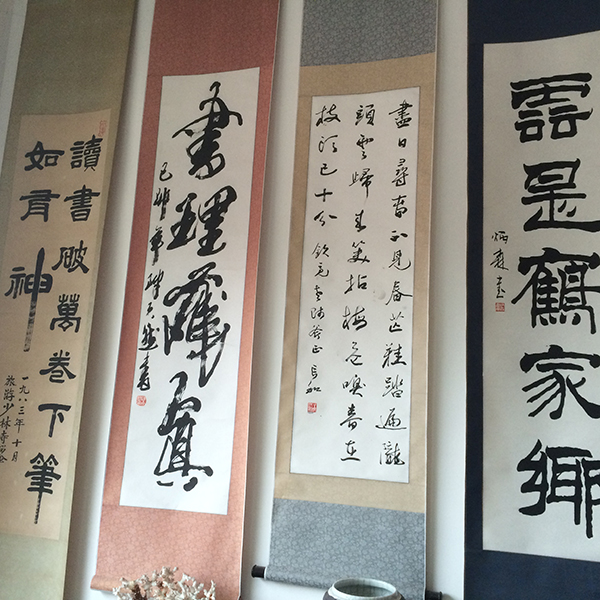 讀書破萬卷下筆
如有神
一九八三年十月
少林寺
書理真
盡日尋春不見春芒鞋踏遍隴
頭雲歸來笑拈梅花嗅春在
枝頭已十分
雲是鶴家鄉
炳森書